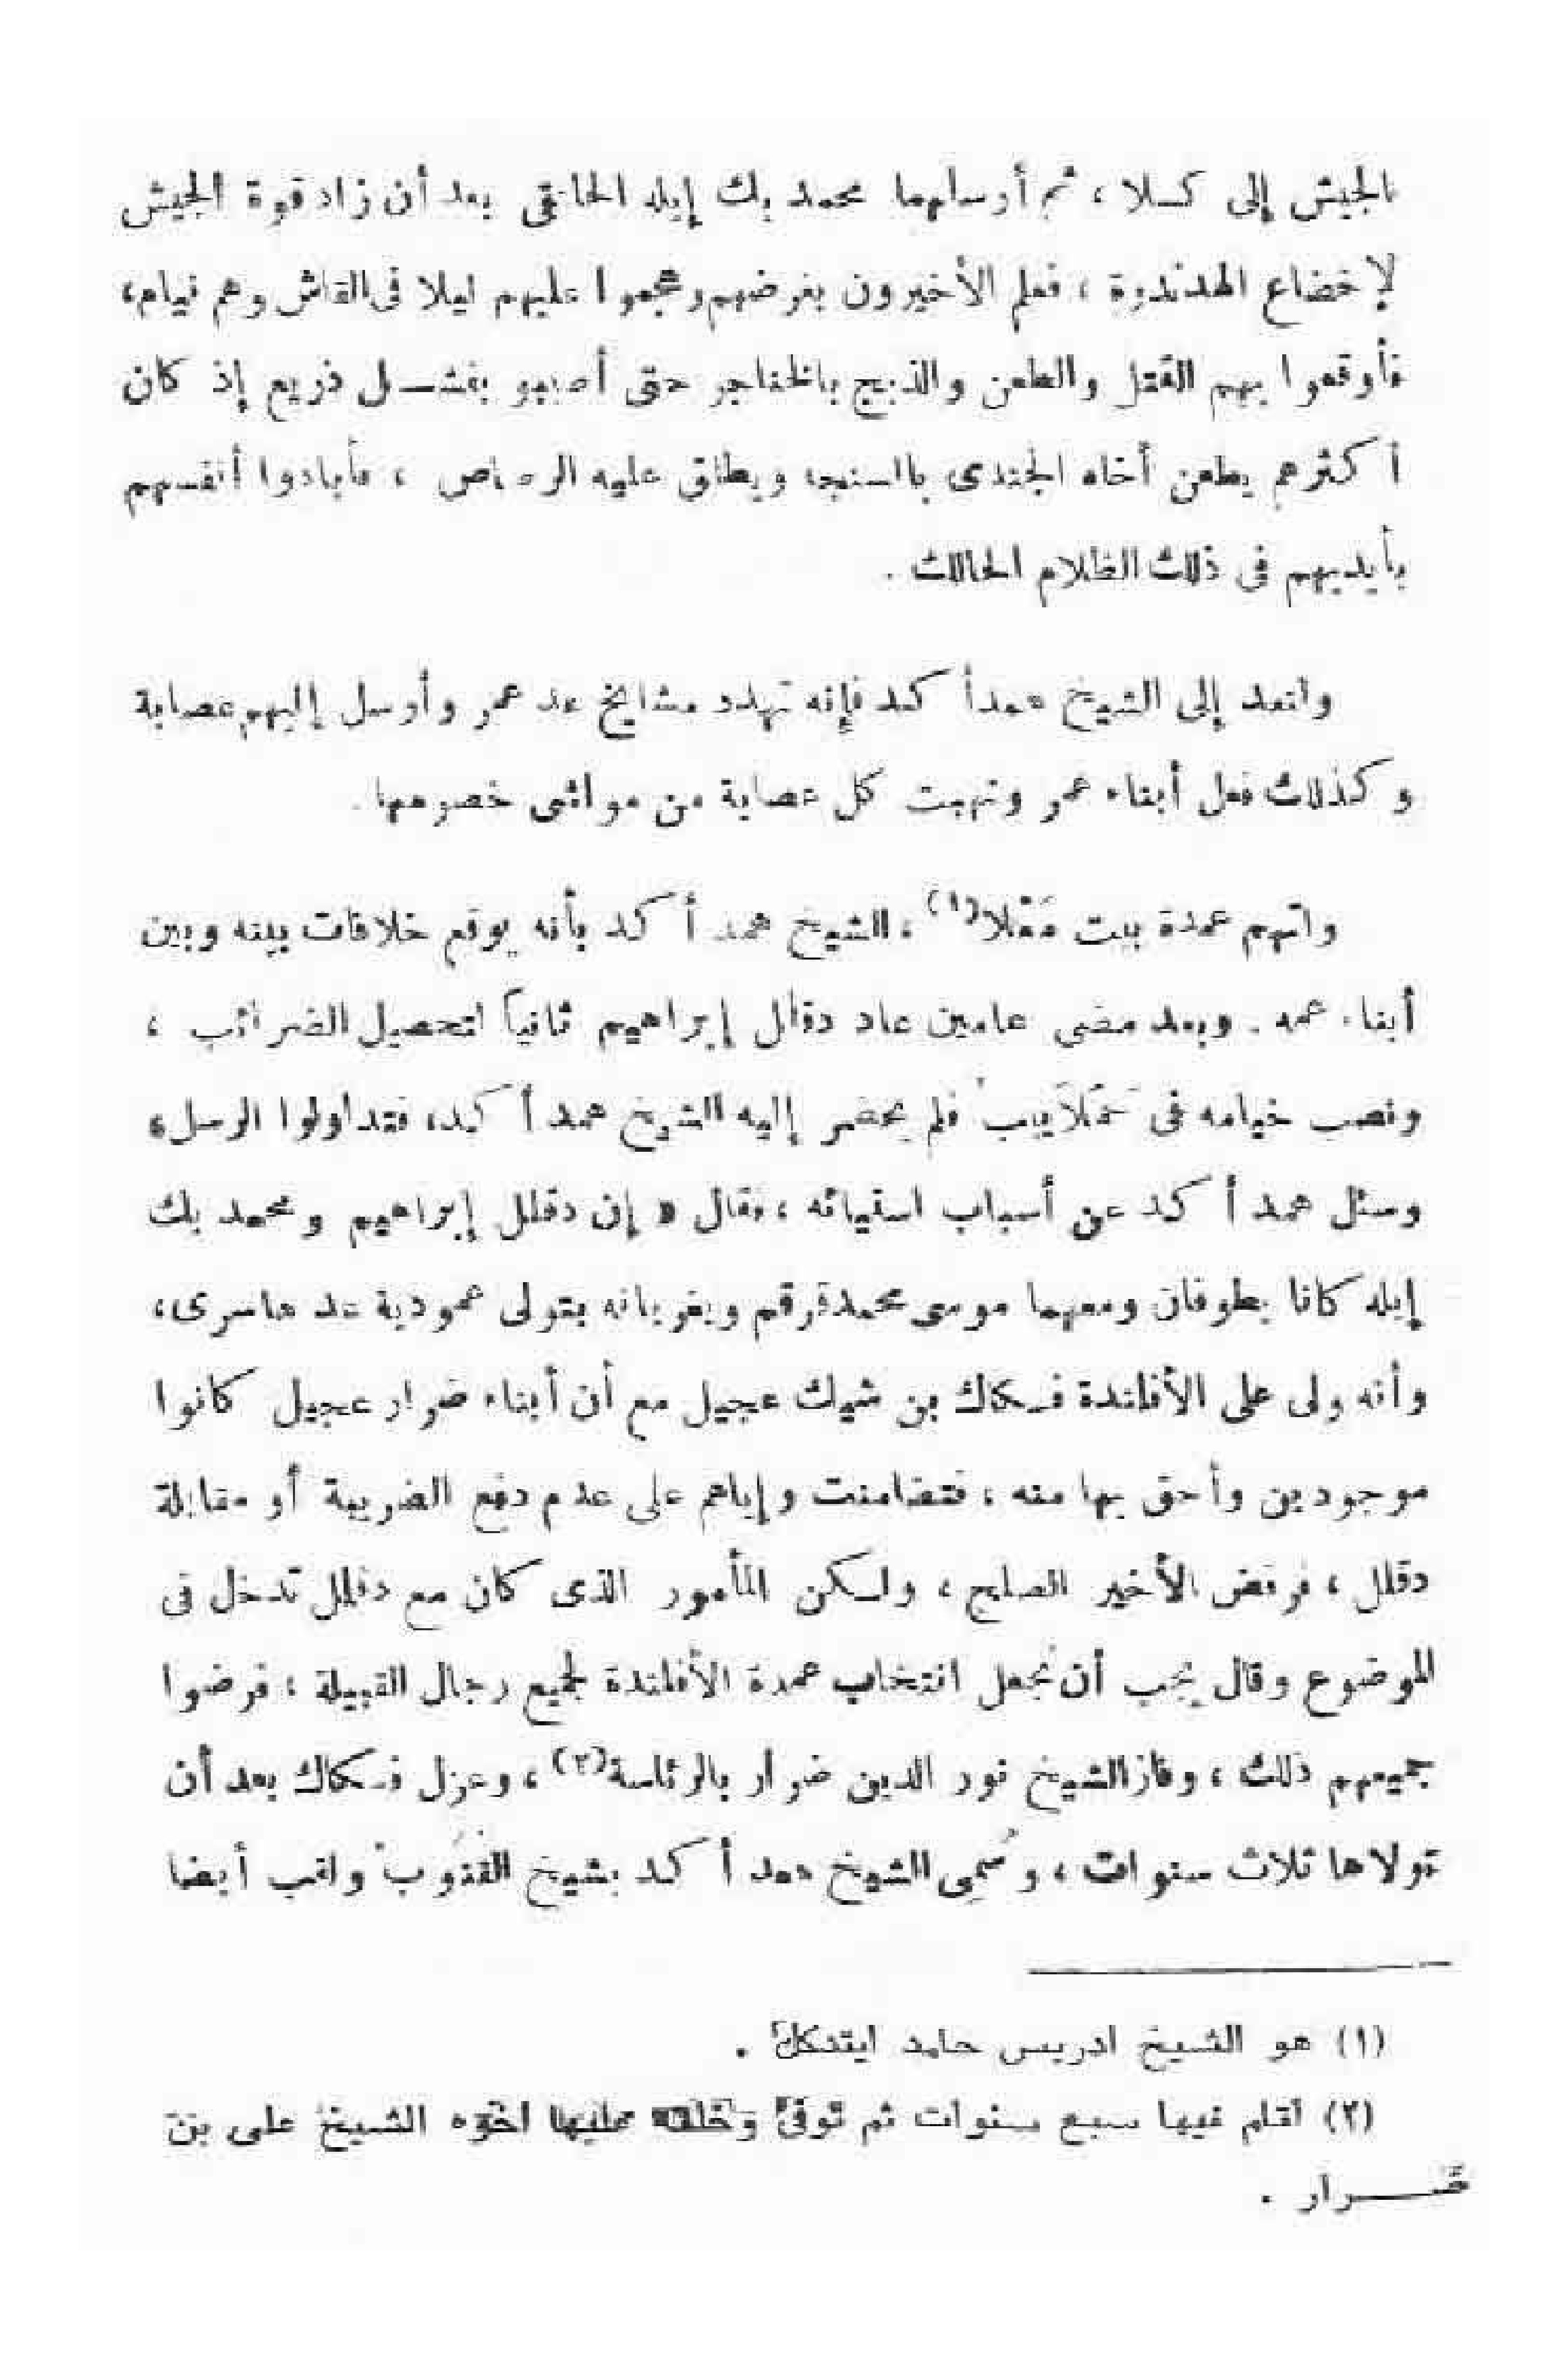 بالجيش إلى كسلا ، ثم أرسلهما محمد بك إيله الخانقى بعد أن زاد قوة الجيش
لإخضاع الهدندوة ، فعلم الأخيرون بغرضهم وهجموا عليهم ليلا فى القاش وهم نيام،
فأوقعوا بهم القتل والطعن والذبح بالخناجر حتى أصيبو بفشــل ذريع إذ كان
أكثرهم يطعن أخاه الجندى بالسنجة ويطلق عليه الرصاص ، فأبادوا أنفسهم
بأيديهم فى ذلك الظلام الحالك .
ولنعد إلى الشيخ حمد أكد فإنه تهدد مشايخ عد عمر وأرسل إليهم عصابة
وكذلك فعل أبناء عمر ونهبت كل عصابة من مواشى خصومها .
واتهم عمدة بيت مَعْلا(١) ، الشيخ حمد أكد بأنه يوقع خلافات بينه وبين
أبناء عمه . وبعد مضى عامين عاد دقلل إبراهيم ثانياً لتحصيل الضرائب ،
ونصب خيامه فى فلم يحضر إليه الشيخ حمد أكد، فتداولوا الرسل،
وسئل حمد أكد عن أسباب استيائه ، فقال « إن دقلل إبراهيم ومحمد بك
إيله كانا يطوفان ومعهما موسى محمد قرقم ويغريانه بتولى عمودية عد هاسرى،
وأنه ولى على الأفلندة فــكاك بن شيك عجيل مع أن أبناء ضرار عجيل كانوا
موجودين وأحق بها منه ، فتضامنت وإياهم على عدم دفع الضريبة أو مقابلة
دقلل ، فرفض الأخير الصلح ، ولـكن المأمور الذى كان مع دقلل تدخل فى
الموضوع وقال يجب أن نجعل انتخاب عمدة الأفلندة لجميع رجال القبيلة ؛ فرضوا
جميعهم ذلك ، وفاز الشيخ نور الدين ضرار بالرئاسة(٢) ، وعزل فــكاك بعد أن
تولاها ثلاث سنوات ، وسُمِى الشيخ حمد أكد بشيخ ولقب أيضا
(١) هو الشيخ ادريس حامد ايتدكل .
(٢) أقام فيها سبع سنوات ثم توفى وخلفه عليها أخوه الشيخ على بن
ضــــرار .